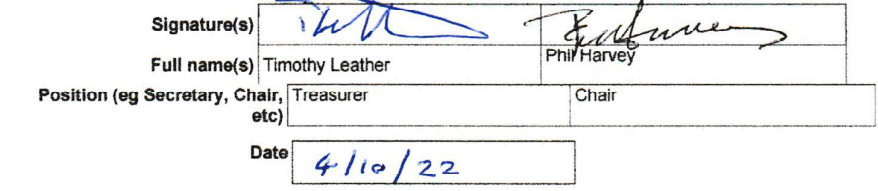 Signature(s)
Full name(s) Timothy Leather Phil Harvey
Position (eg Secretary, Chair, Treasurer Chair
etc)
Date 4/10/22